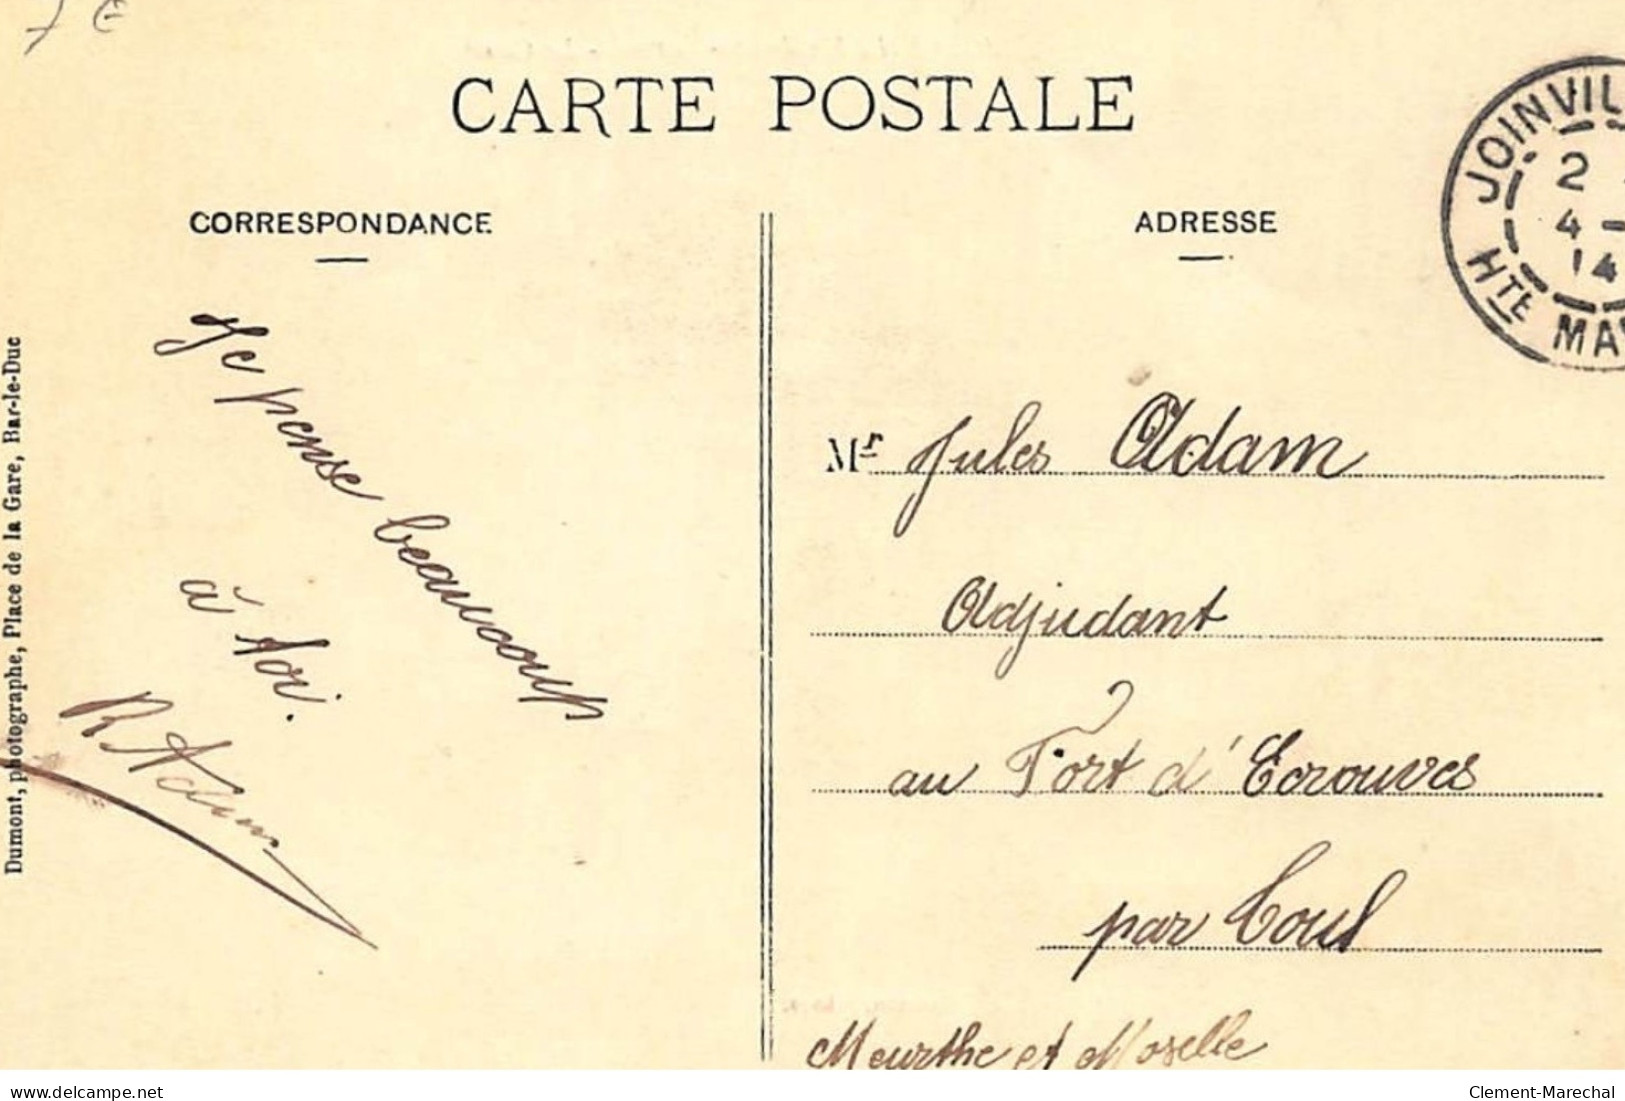 7 €
CARTE POSTALE
CORRESPONDANCE
ADRESSE
JOINVIL
2
4 -
14
HTE MA
Je pense beaucoup
à toi.
R Adam
Dumont, photographe, Place de la Gare, Bar-le-Duc
Mr Jules Adam
Adjudant
au Fort d'Ecrouves
par Toul
Meurthe et Moselle
www.delcampe.net
Clement-Marechal